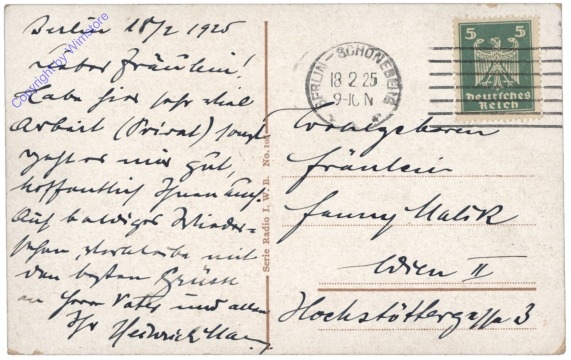 Berlin 18/2 1925
Liebes Fräulein!
Habe hier sehr viel
Arbeit (Privat) sonst
geht es mir gut,
hoffentlich Ihnen auch.
Auf baldiges Wieder-
sehen, verbleibe mit
den besten Grüssen
an Herrn Vater und allen
Ihr Heinrich
Copyright by Winstore
Serie Radio I. W. B. No. 108
BERLIN-SCHÖNEBERG
18 2 25
9-10 N
5 5
Deutsches
Reich
Wohlgeboren
Fräulein
Fanny Malik
Wien II
Hochstöttergasse 3